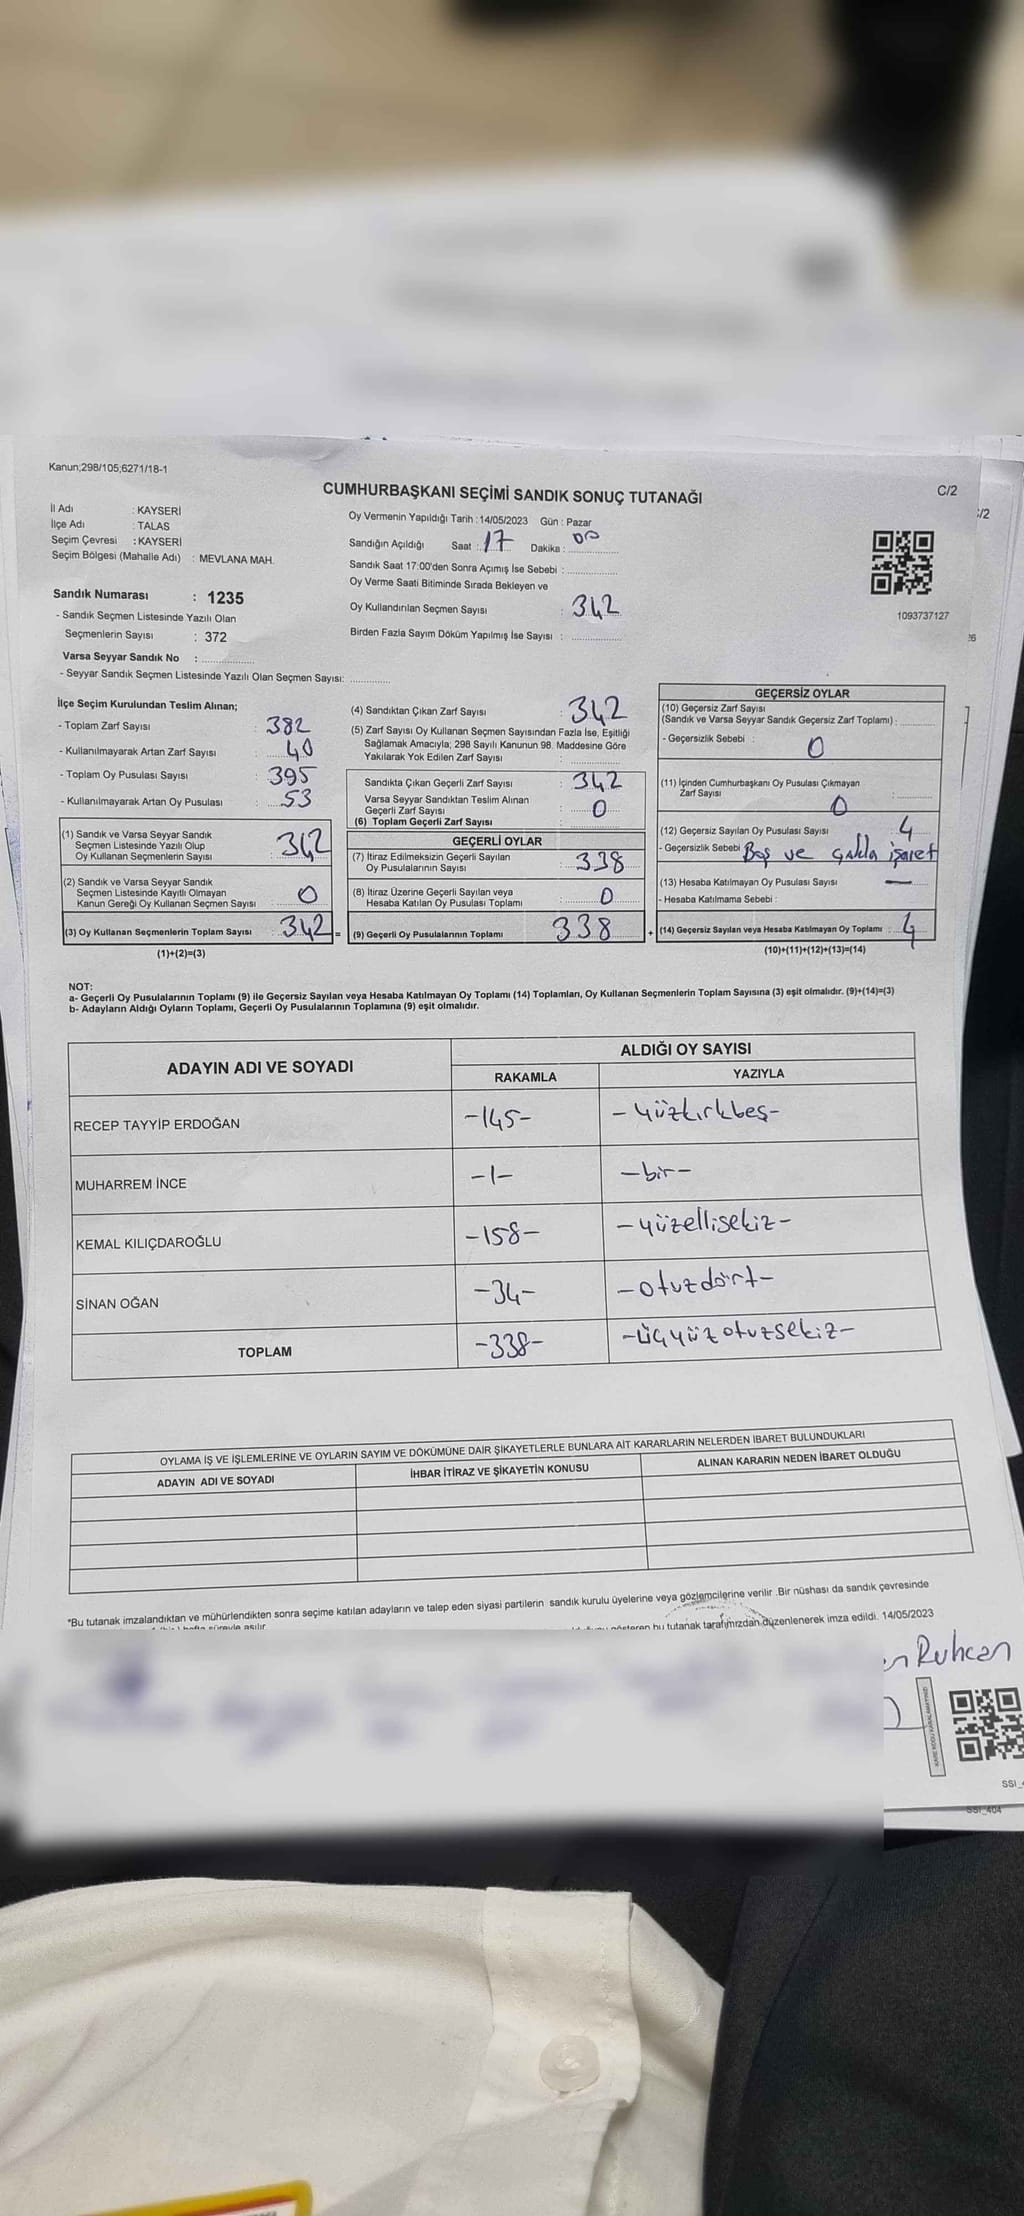 Kanun;298/105;6271/18-1
C/2
CUMHURBAŞKANI SEÇİMİ SANDIK SONUÇ TUTANAĞI
/2
İl Adı : KAYSERİ
İlçe Adı : TALAS
Seçim Çevresi : KAYSERİ
Seçim Bölgesi (Mahalle Adı) : MEVLANA MAH.
Oy Vermenin Yapıldığı Tarih :14/05/2023 Gün : Pazar
Sandığın Açıldığı Saat : 17 Dakika : 00
Sandık Saat 17:00'den Sonra Açımış İse Sebebi :
Oy Verme Saati Bitiminde Sırada Bekleyen ve
Oy Kullandırılan Seçmen Sayısı : 342
Birden Fazla Sayım Döküm Yapılmış İse Sayısı :
1093737127
Sandık Numarası : 1235
- Sandık Seçmen Listesinde Yazılı Olan
Seçmenlerin Sayısı : 372
Varsa Seyyar Sandık No :
- Seyyar Sandık Seçmen Listesinde Yazılı Olan Seçmen Sayısı:
İlçe Seçim Kurulundan Teslim Alınan;
- Toplam Zarf Sayısı : 382
- Kullanılmayarak Artan Zarf Sayısı : 40
- Toplam Oy Pusulası Sayısı : 395
- Kullanılmayarak Artan Oy Pusulası : 53
(1) Sandık ve Varsa Seyyar Sandık
Seçmen Listesinde Yazılı Olup
Oy Kullanan Seçmenlerin Sayısı : 342
(2) Sandık ve Varsa Seyyar Sandık
Seçmen Listesinde Kayıtlı Olmayan
Kanun Gereği Oy Kullanan Seçmen Sayısı : 0
(3) Oy Kullanan Seçmenlerin Toplam Sayısı : 342 =
(1)+(2)=(3)
(4) Sandıktan Çıkan Zarf Sayısı : 342
(5) Zarf Sayısı Oy Kullanan Seçmen Sayısından Fazla İse, Eşitliği
Sağlamak Amacıyla; 298 Sayılı Kanunun 98. Maddesine Göre
Yakılarak Yok Edilen Zarf Sayısı :
Sandıkta Çıkan Geçerli Zarf Sayısı : 342
Varsa Seyyar Sandıktan Teslim Alınan
Geçerli Zarf Sayısı : 0
(6) Toplam Geçerli Zarf Sayısı :
GEÇERLİ OYLAR
(7) İtiraz Edilmeksizin Geçerli Sayılan
Oy Pusulalarının Sayısı : 338
(8) İtiraz Üzerine Geçerli Sayılan veya
Hesaba Katılan Oy Pusulası Toplamı : 0
(9) Geçerli Oy Pusulalarının Toplamı : 338 +
GEÇERSİZ OYLAR
(10) Geçersiz Zarf Sayısı
(Sandık ve Varsa Seyyar Sandık Geçersiz Zarf Toplamı) :
- Geçersizlik Sebebi : 0
(11) İçinden Cumhurbaşkanı Oy Pusulası Çıkmayan
Zarf Sayısı : 0
(12) Geçersiz Sayılan Oy Pusulası Sayısı : 4
- Geçersizlik Sebebi : Boş ve çokla işaret
(13) Hesaba Katılmayan Oy Pusulası Sayısı : —
- Hesaba Katılmama Sebebi :
(14) Geçersiz Sayılan veya Hesaba Katılmayan Oy Toplamı : 4
(10)+(11)+(12)+(13)=(14)
NOT:
a- Geçerli Oy Pusulalarının Toplamı (9) ile Geçersiz Sayılan veya Hesaba Katılmayan Oy Toplamı (14) Toplamları, Oy Kullanan Seçmenlerin Toplam Sayısına (3) eşit olmalıdır. (9)+(14)=(3)
b- Adayların Aldığı Oyların Toplamı, Geçerli Oy Pusulalarının Toplamına (9) eşit olmalıdır.
ADAYIN ADI VE SOYADI ALDIĞI OY SAYISI
RAKAMLA YAZIYLA
RECEP TAYYİP ERDOĞAN -145- -yüzkırkbeş-
MUHARREM İNCE -1- -bir-
KEMAL KILIÇDAROĞLU -158- -yüzellisekiz-
SİNAN OĞAN -34- -otuzdört-
TOPLAM -338- -üçyüzotuzsekiz-
OYLAMA İŞ VE İŞLEMLERİNE VE OYLARIN SAYIM VE DÖKÜMÜNE DAİR ŞİKAYETLERLE BUNLARA AİT KARARLARIN NELERDEN İBARET BULUNDUKLARI
ADAYIN ADI VE SOYADI İHBAR İTİRAZ VE ŞİKAYETİN KONUSU ALINAN KARARIN NEDEN İBARET OLDUĞU
*Bu tutanak imzalandıktan ve mühürlendikten sonra seçime katılan adayların ve talep eden siyasi partilerin sandık kurulu üyelerine veya gözlemcilerine verilir .Bir nüshası da sandık çevresinde
hafta süreyle asılır
gösteren bu tutanak tarafımızdan düzenlenerek imza edildi. 14/05/2023
Ruhcan
SSI_404